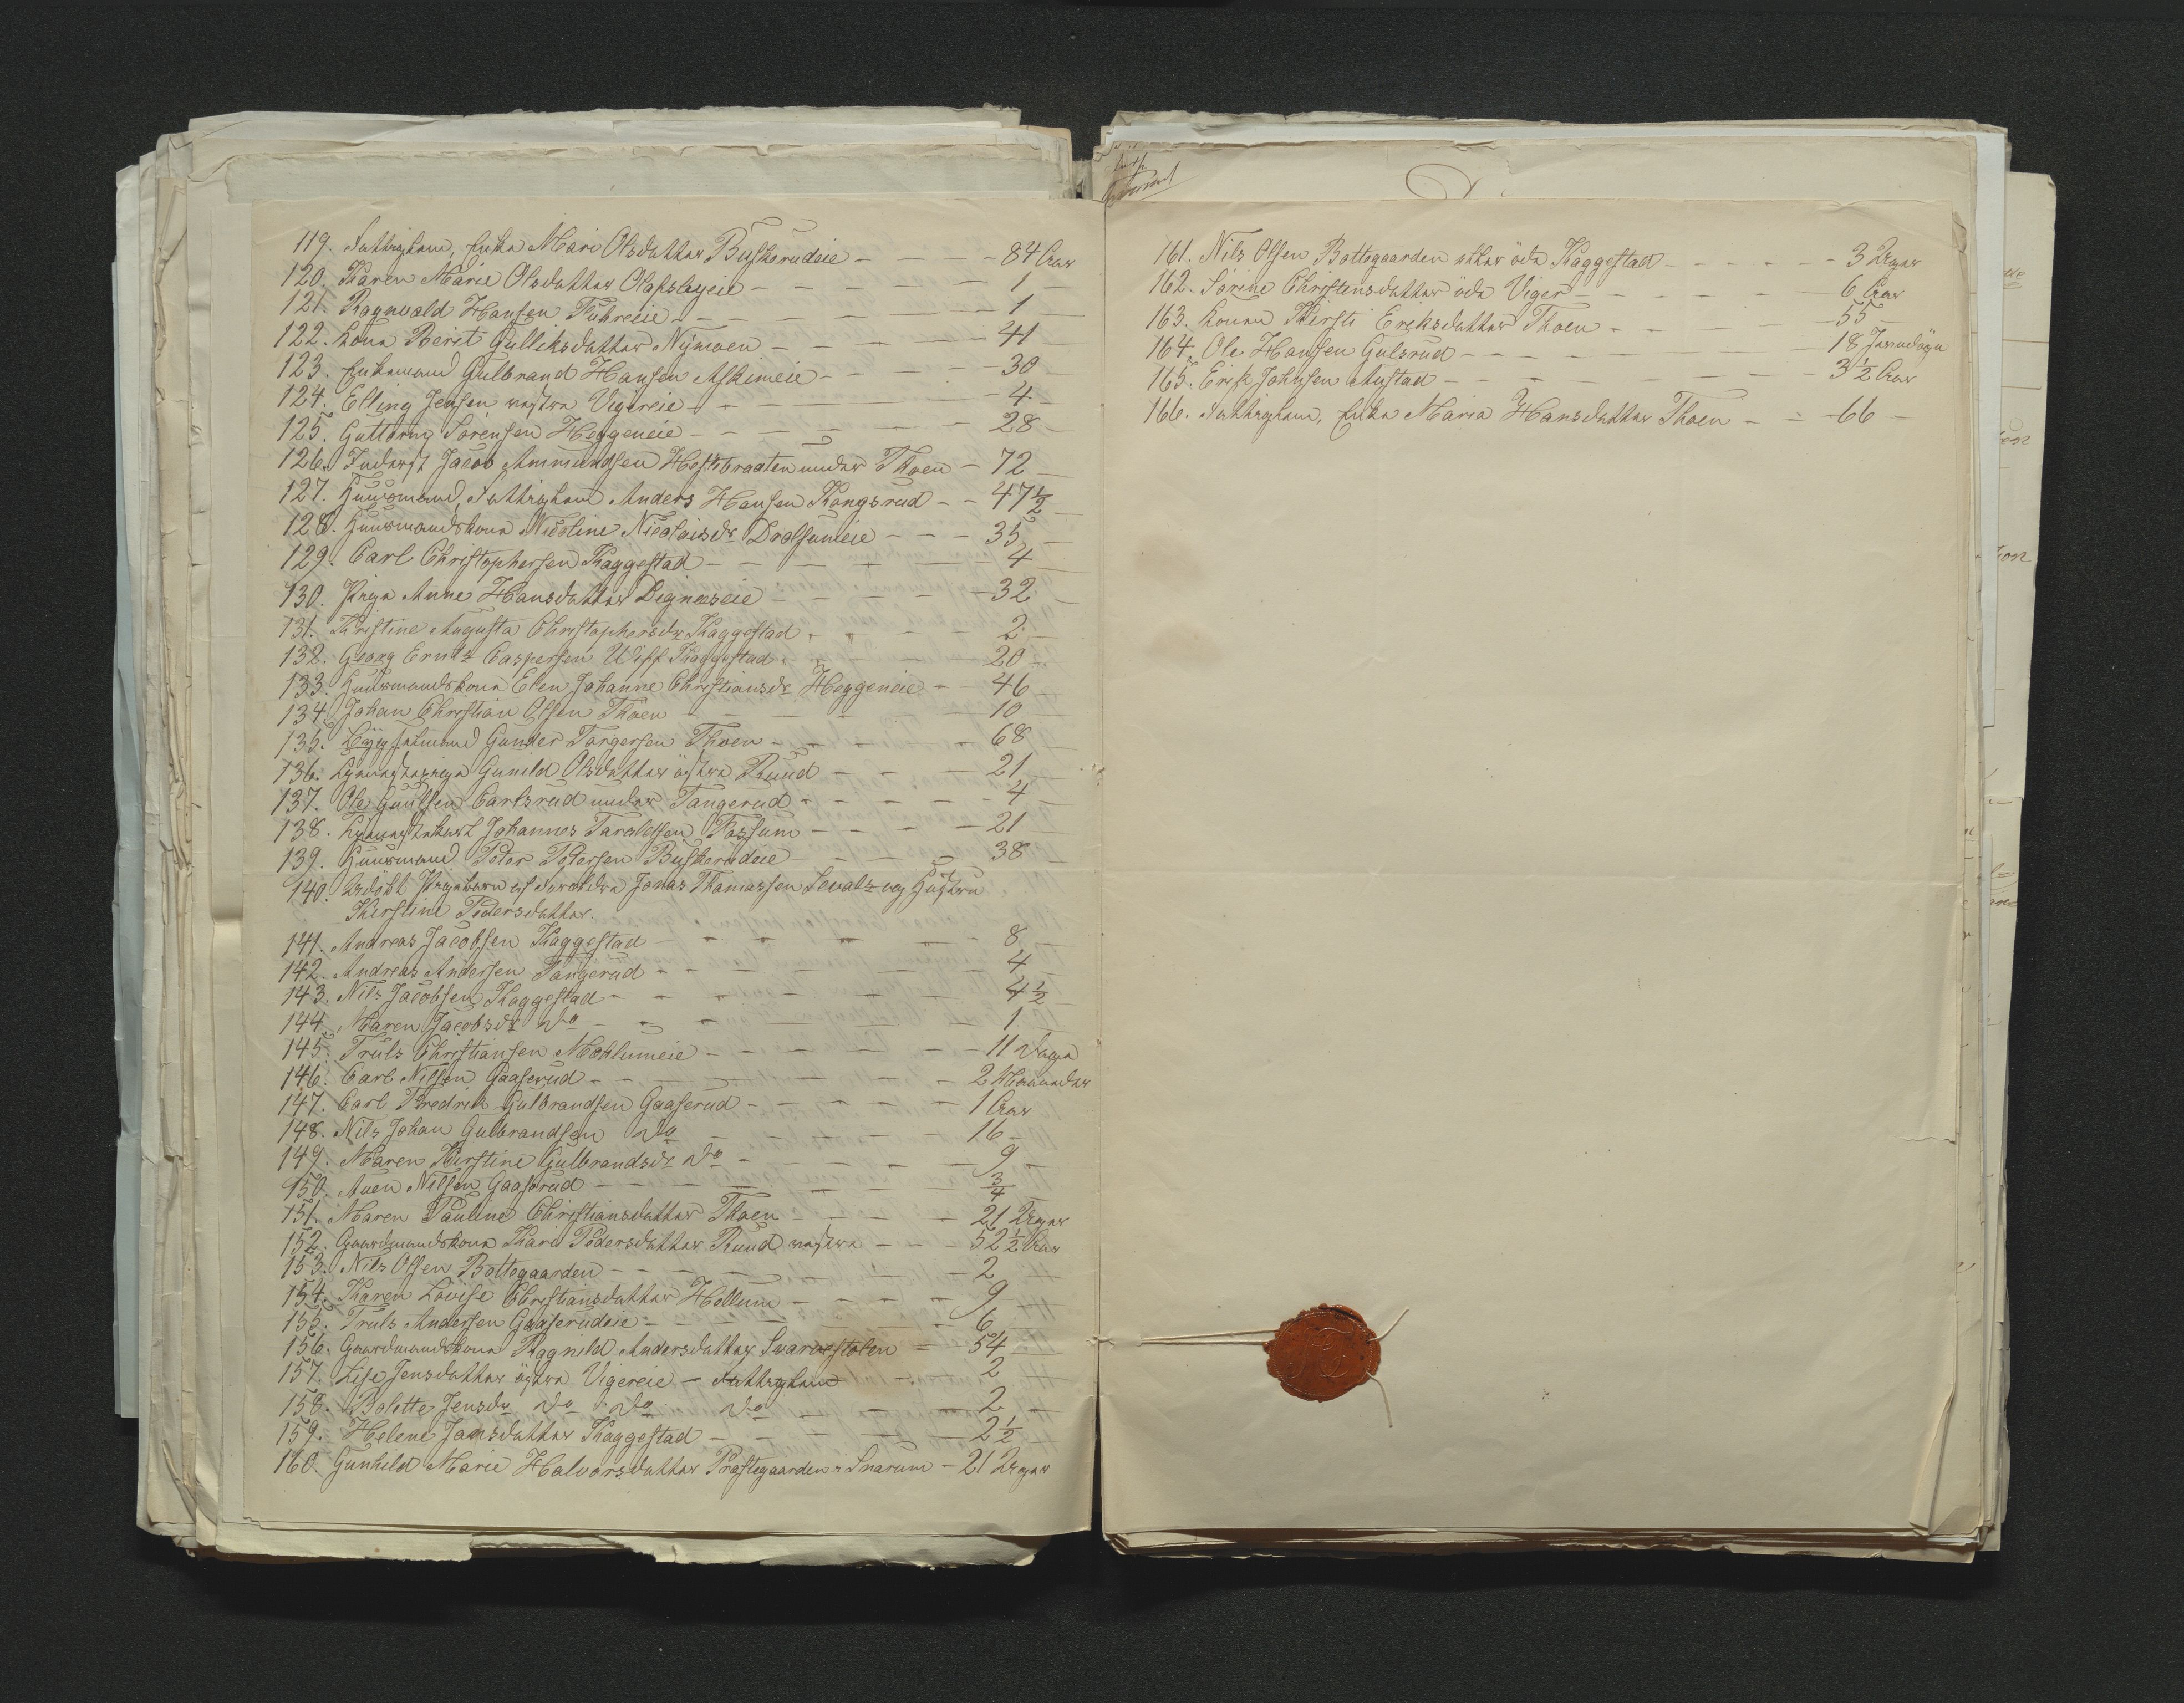 119. Fattiglem, Enke Mari Olsdatter Buskerudeie - - - 84 Aar
120. Karen Marie Olsdatter - - - 1 -
121. Ragnvald Hansen - - - 1 -
122. Kone Berit Gulliksdatter Nymoen - - - 41 -
123. Enkemand Gulbrand Hansen Askimeie - - - 30 -
124. Elling Jensen vestre Vigereie - - - 4 -
125. Guttorm Sörensen Heggeneie - - - 28 -
126. Inderst Jacob Ammundsen under Thoen - 72 -
127. Huusmand, Fattiglem Anders Hansen Kongsrud - - 47 1/2 -
128. Huusmandskone Nicoline Nicolaisdr Drolsumeie - - - 35 -
129. Carl Christophersen Kaggestad - - - 4 -
130. Pige Anne Hansdatter Digneseie - - - 32 -
131. Kristine Augusta Christophersdr Kaggestad - - - 2 -
132. Georg Ernst Caspersen Wiff Kaggestad - - - 20 -
133. Huusmandskone Elen Johanne Christiansdr Heggeneie - - 46 -
134. Johan Christian Olsen Thoen - - - 10 -
135. Gunder Torgersen Thoen - - - 68 -
136. Tjenestepige Gunild Olsdatter östre Ruud - - - 21 -
137. Ole Paulsen Carlsrud under Tangerud - - - 4 -
138. Johannes Taraldsen Fossum - - - 21 -
139. Huusmand Peter Pedersen Buskerudeie - - - 38 -
140. Udöbt Pigebarn af Forældre Jonas Thomassen og Hustru
Kirstine Pedersdatter.
141. Andreas Jacobsen Kaggestad - - - 8 -
142. Andreas Andersen Tangerud - - - 4 -
143. Nils Jacobsen Kaggestad - - - 4 1/2 -
144. Maren Jacobsdr do - - - 1 -
145. Truls Christiansen Moklumeie - - - 11 Dage
146. Carl Nilsen Gaaserud - - - 2 Maaneder
147. Carl Fredrik Gulbrandsen Gaaserud - - - 1 Aar
148. Nils Johan Gulbrandsen do - - - 16 -
149. Maren Kirstine Gulbrandsdr do - - - 9 -
150. Auen Nilsen Gaaserud - - - 3/4 -
151. Maren Pauline Christiansdatter Thoen - - - 21 Uger
152. Gaardmandskone Kari Pedersdatter Ruud vestre - - - 52 1/2 Aar
153. Nils Olsen Bottegaarden - - - 2
154. Karen Lovise Christiansdatter Hollum - - - 9
155. Truls Andersen Gaaserudeie - - - 6 -
156. Gaardmandskone Ragnild Andersdatter Svarvestolen - - 54 -
157. Lise Jensdatter östre Vigereie - Fattiglem - 2 -
158. Bolette Jensdr do do do - - - 2 -
159. Helene Jansdatter Kaggestad - - - 2 1/2
160. Gunhild Marie Halvorsdatter Præstegaarden i Snarum - 21 Uger
161. Nils Olsen Bottegaarden eller öde Kaggestad - - - 3 Uger
162. Sörine Christensdatter öde Viger - - - 6 Aar
163. Konen Kirsti Eriksdatter Thoen - - - 55 -
164. Ole Hansen Gulsrud - - - 18
165. Erik Johnsen Austad - - - 3 1/2 Aar
166. Fattiglem, Enke Maria Hansdatter Thoen - - 66 -